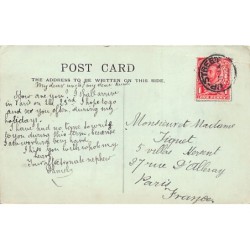 POST CARD
THE ADDRESS TO BE WRITTEN ON THIS SIDE.
My dear uncle, my dear aunt
How are you? I shall arrive
in Paris on the 23rd. I hope to go
and see you often, during my
holidays.
I have had no time to write to
you during this term, because I
am working very hard.
I hope you will
Your affectionate nephew
Monsieur et Madame
5 villa
97 rue d'
Paris
France